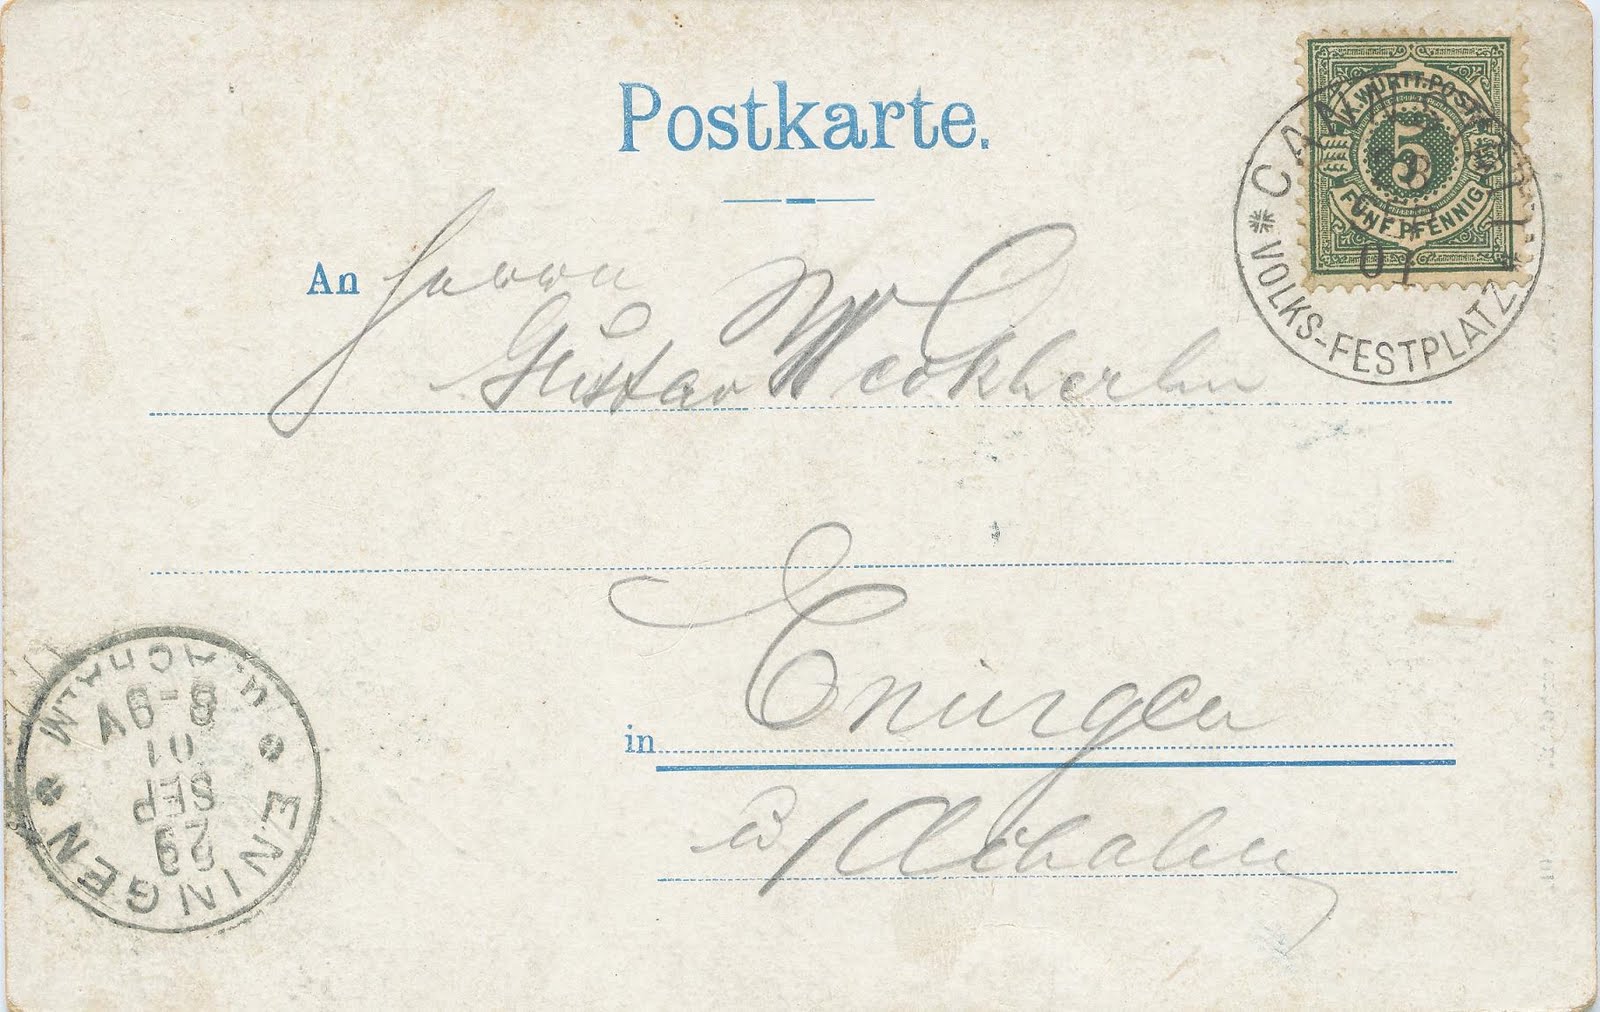 Postkarte.
K. WÜRTT. POST
5
FÜNF PFENNIG
CANNSTATT
01
VOLKS-FESTPLATZ
An Herrn
Gustav Weckherlin
in Eningen
u/Achalm
ENINGEN
U. ACHALM
29
SEP
01
8-9V